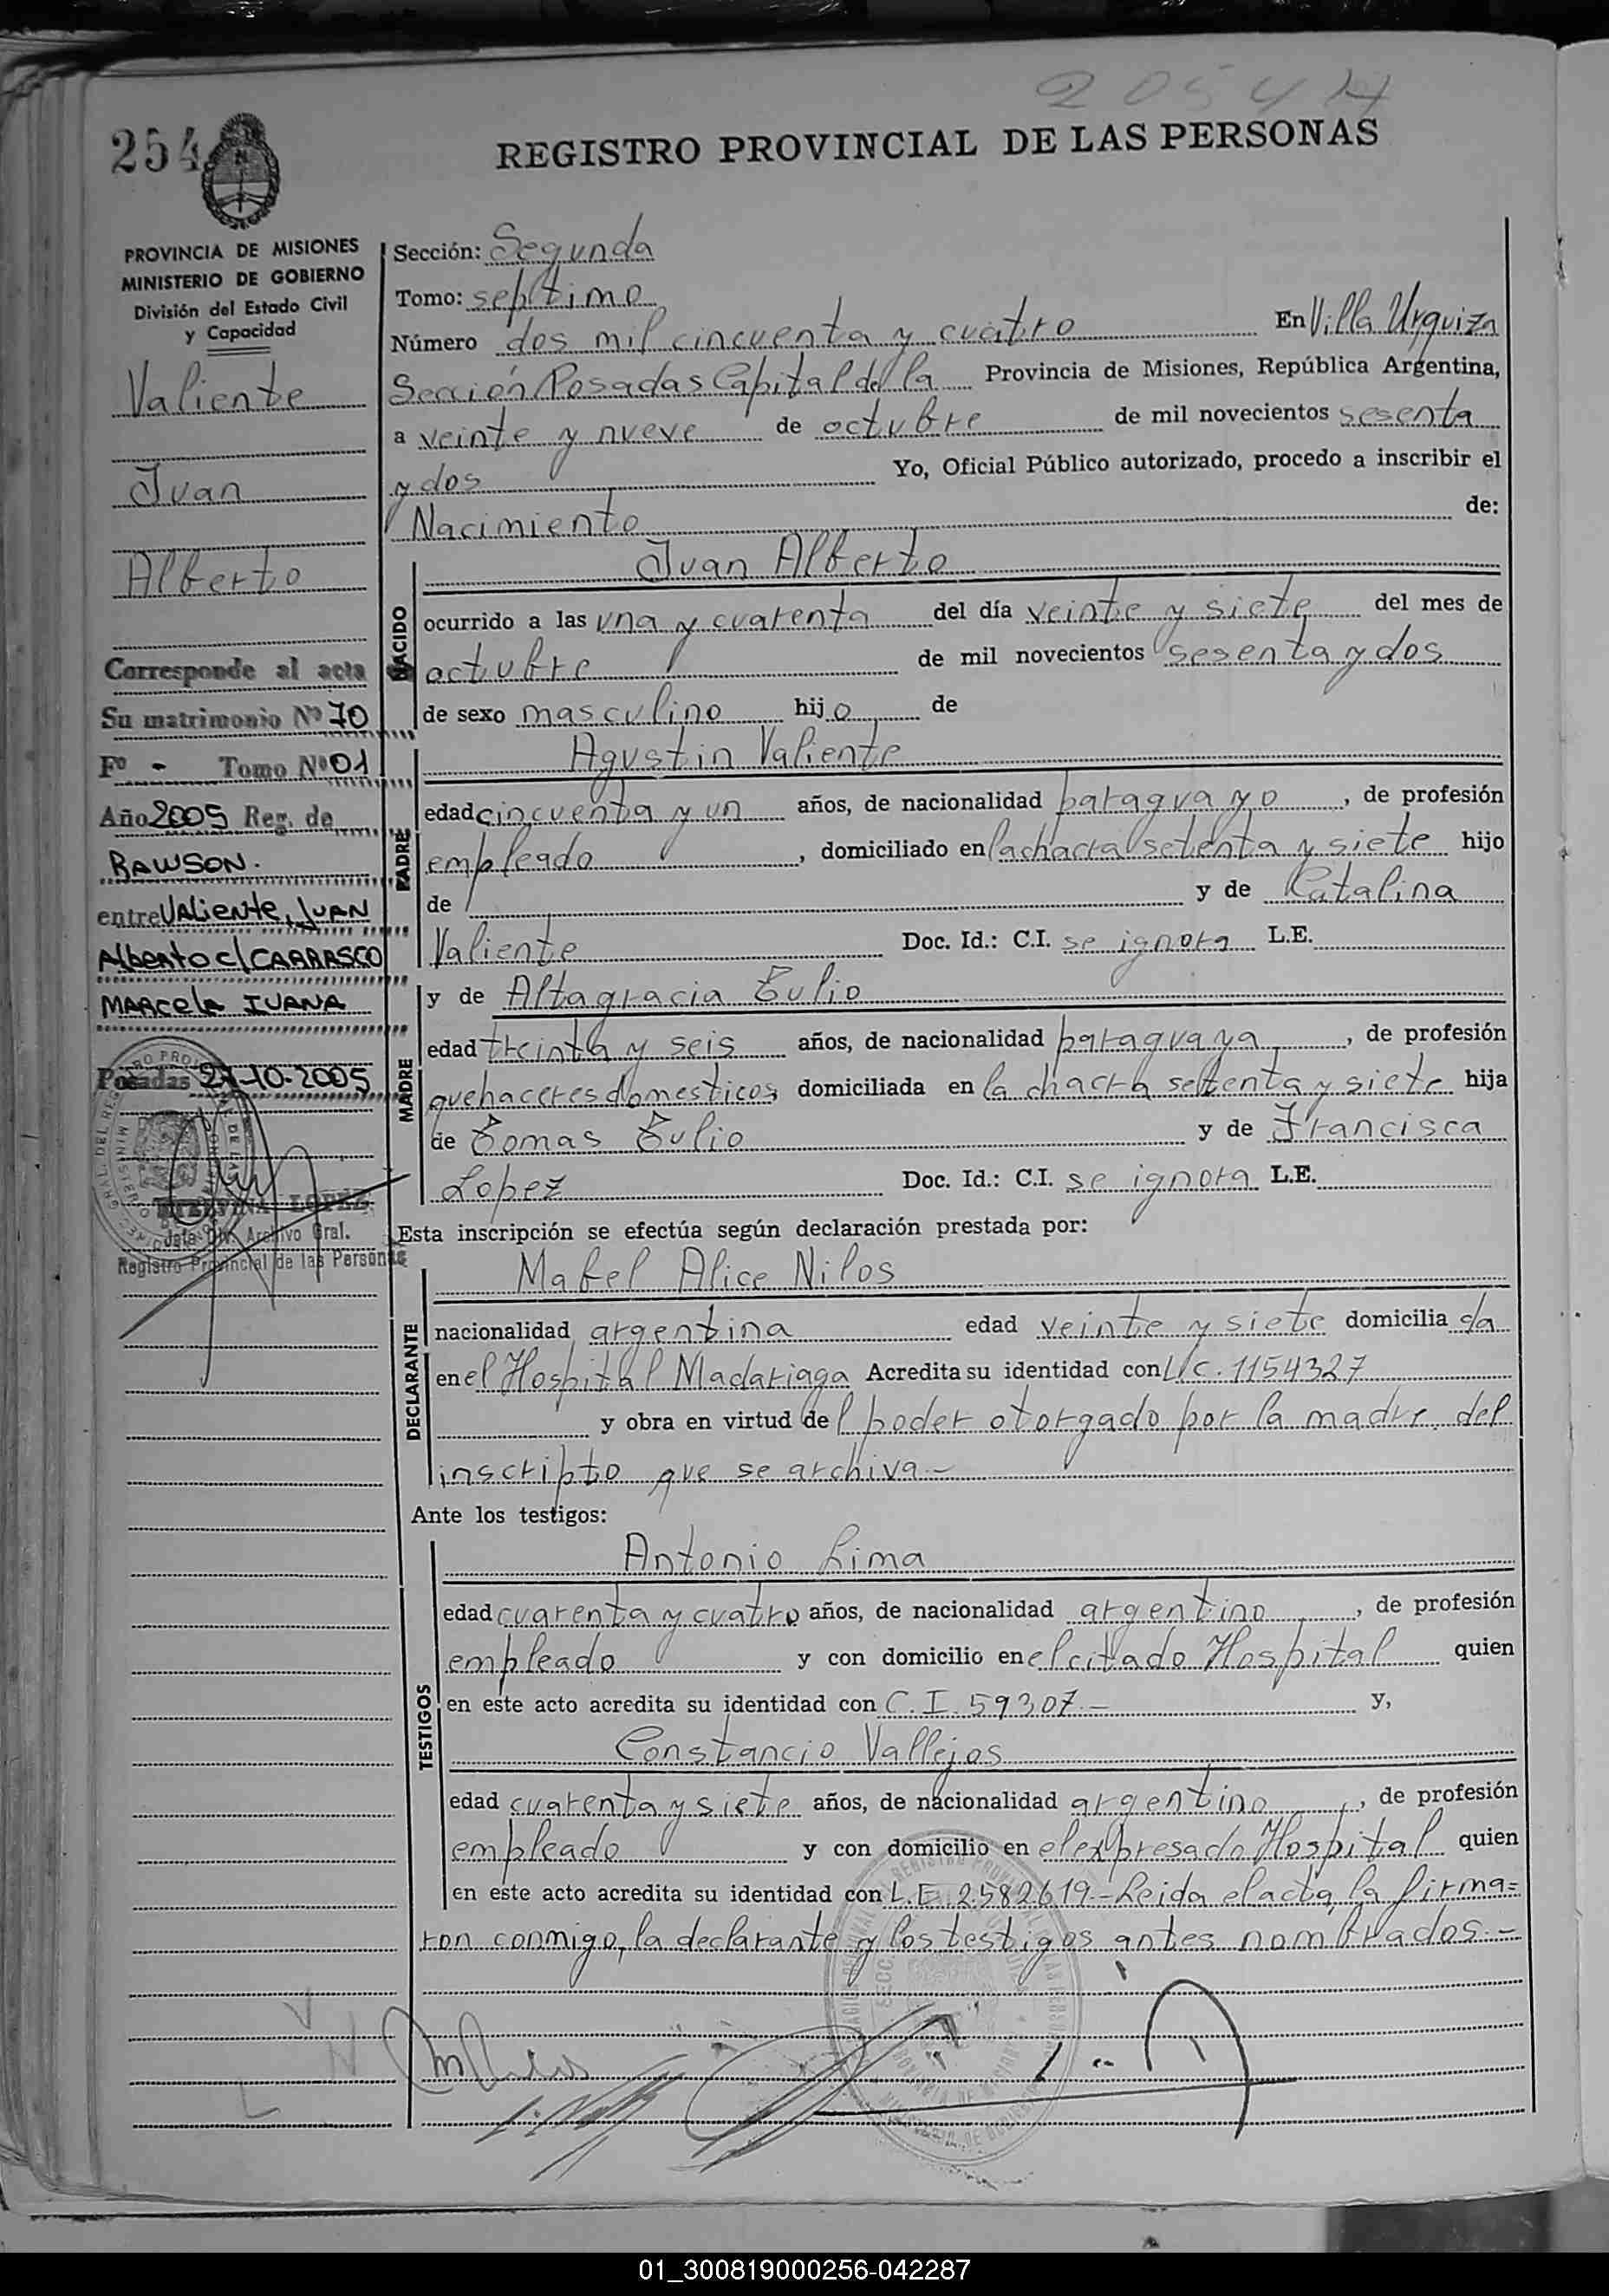 2054 N
254
REGISTRO PROVINCIAL DE LAS PERSONAS
PROVINCIA DE MISIONES
MINISTERIO DE GOBIERNO
División del Estado Civil
y Capacidad
Valiente
Juan
Alberto
Corresponde al acta
Su matrimonio Nº 70
Fº - Tomo Nº 01
Año 2005 Reg. de
RAWSON.
entre VALiente, JUAN
Alberto c/ CARRASCO
MARCela IVANA
Posadas 27-10-2005
LOPEZ
Jefe Div. Archivo Gral.
Registro Provincial de las Personas
Sección: Segunda
Tomo: septimo
Número dos mil cincuenta y cuatro En Villa Urquiza
Sección Posadas Capital de la Provincia de Misiones, República Argentina,
a veinte y nueve de octubre de mil novecientos sesenta
y dos Yo, Oficial Público autorizado, procedo a inscribir el
Nacimiento de:
NACIDO
Juan Alberto
ocurrido a las una y cuarenta del día veinte y siete del mes de
octubre de mil novecientos sesenta y dos
de sexo masculino hijo de
PADRE
Agustin Valiente
edad cincuenta y un años, de nacionalidad paraguayo, de profesión
empleado, domiciliado en la chacra setenta y siete hijo
de y de Catalina
Valiente Doc. Id.: C.I. se ignora L.E.
MADRE
y de Altagracia Tulio
edad treinta y seis años, de nacionalidad paraguaya, de profesión
quehaceres domesticos, domiciliada en la chacra setenta y siete hija
de Tomas Tulio y de Francisca
Lopez Doc. Id.: C.I. se ignora L.E.
Esta inscripción se efectúa según declaración prestada por:
DECLARANTE
Mabel Alice Nilos
nacionalidad argentina edad veinte y siete domiciliada
en el Hospital Madariaga Acredita su identidad con L/C. 1154327
y obra en virtud del poder otorgado por la madre del
inscripto que se archiva.-
Ante los testigos:
TESTIGOS
Antonio Lima
edad cuarenta y cuatro años, de nacionalidad argentino, de profesión
empleado y con domicilio en el citado Hospital quien
en este acto acredita su identidad con C.I. 59307.- y,
Constancio Vallejos
edad cuarenta y siete años, de nacionalidad argentino, de profesión
empleado y con domicilio en el expresado Hospital quien
en este acto acredita su identidad con L.E. 2.582.619.- Leida el acta, la firma=
ron conmigo, la declarante y los testigos antes nombrados.-
01_300819000256-042287